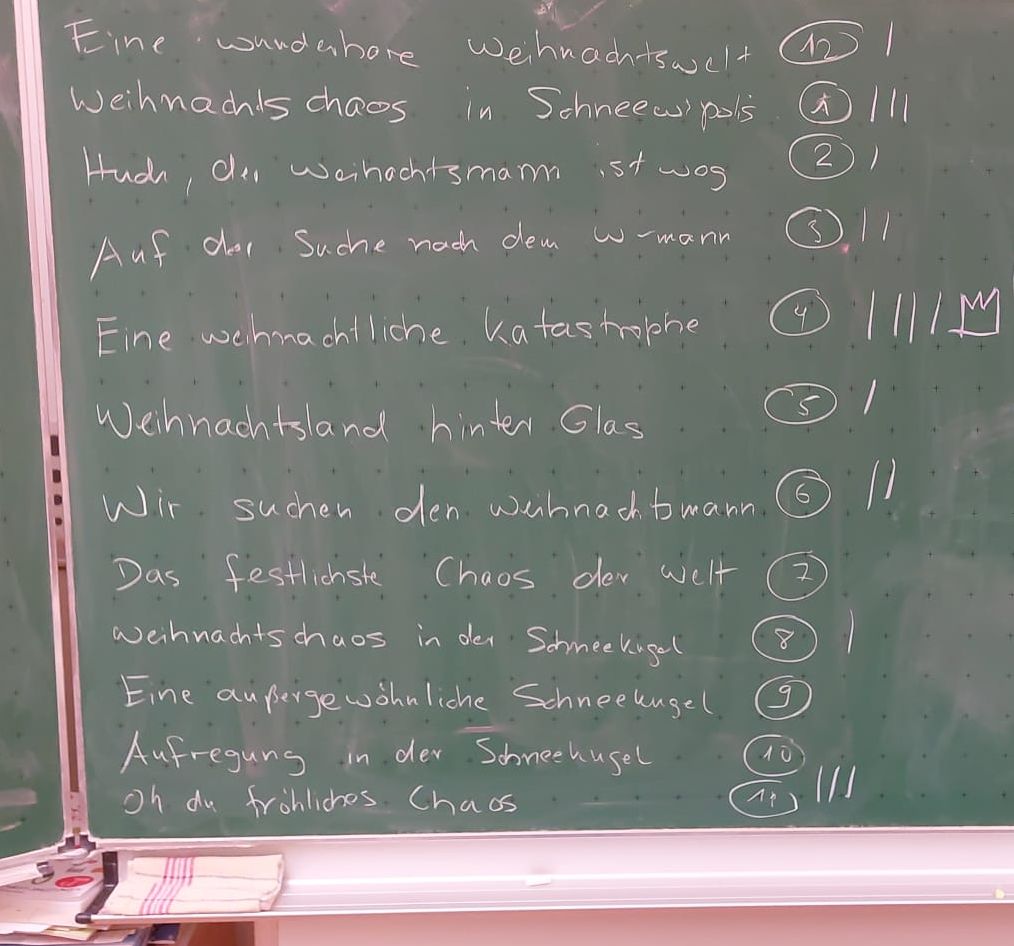 Eine wunderbare Weihnachtswelt 12 |
Weihnachtschaos in Schneewipolis 1 |||
Huch, der Weihachtsmann ist weg 2 |
Auf der Suche nach dem W-mann 3 ||
Eine weihnachtliche Katastrophe 4 ||||
Weihnachtsland hinter Glas 5 |
Wir suchen den Weihnachtsmann 6 ||
Das festlichste Chaos der Welt 7
Weihnachtschaos in der Schneekugel 8 |
Eine außergewöhnliche Schneekugel 9
Aufregung in der Schneekugel 10
Oh du fröhliches Chaos 11 |||